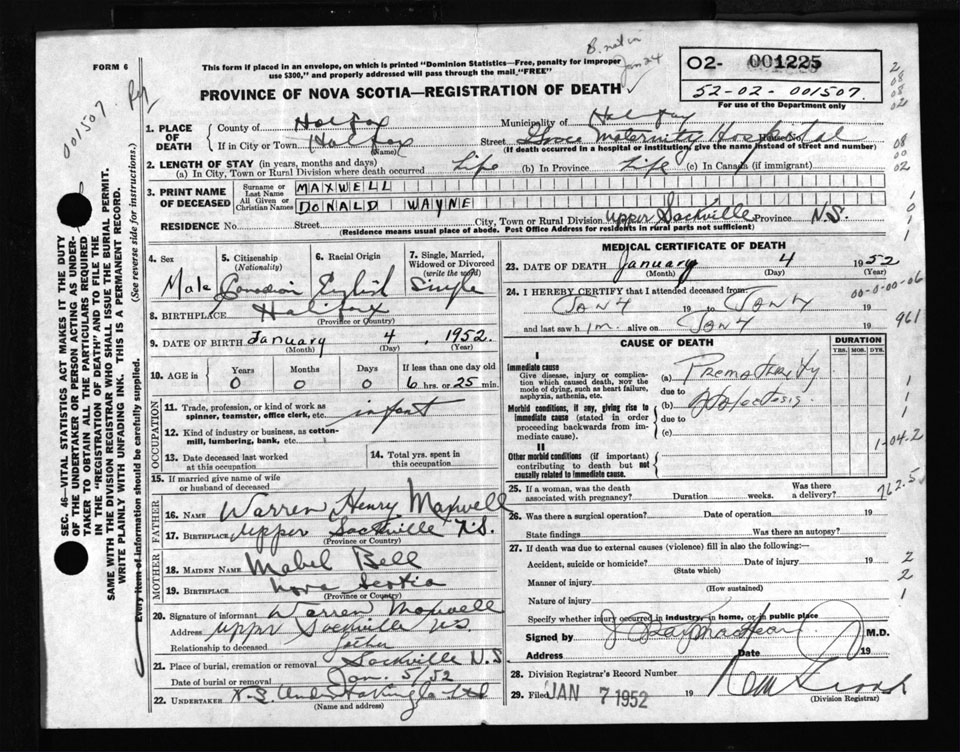 B. not in
Jan 24
FORM 6
This form if placed in an envelope, on which is printed "Dominion Statistics—Free, penalty for improper
use $300," and properly addressed will pass through the mail "FREE"
02- 001225
52-02-001507.
For use of the Department only
PROVINCE OF NOVA SCOTIA—REGISTRATION OF DEATH
001507. Reg
1. PLACE OF DEATH
County of Halifax
Municipality of Halifax
If in City or Town Halifax
(Name)
Street Grace Maternity Hospital House No.
(If death occurred in a hospital or institution, give the name instead of street and number)
2. LENGTH OF STAY (in years, months and days)
(a) In City, Town or Rural Division where death occurred Life (b) In Province Life (c) In Canada (if immigrant)
3. PRINT NAME OF DECEASED
Surname or Last Name MAXWELL
All Given or Christian Names DONALD WAYNE
RESIDENCE No. Street City, Town or Rural Division Upper Sackville Province N.S.
(Residence means usual place of abode. Post Office Address for residents in rural parts not sufficient)
4. Sex Male
5. Citizenship (Nationality) Canadian
6. Racial Origin English
7. Single, Married, Widowed or Divorced (write the word) Single
8. BIRTHPLACE Halifax
(Province or Country)
9. DATE OF BIRTH January 4, 1952.
(Month) (Day) (Year)
10. AGE in Years 0 Months 0 Days 0 If less than one day old 6 hrs. or 25 min.
OCCUPATION
11. Trade, profession, or kind of work as spinner, teamster, office clerk, etc. infant
12. Kind of industry or business, as cotton-mill, lumbering, bank, etc.
13. Date deceased last worked at this occupation
14. Total yrs. spent in this occupation
15. If married give name of wife or husband of deceased
FATHER
16. NAME Warren Henry Maxwell
17. BIRTHPLACE Upper Sackville N.S.
(Province or Country)
MOTHER
18. MAIDEN NAME Mabel Bell
19. BIRTHPLACE Nova Scotia
(Province or Country)
20. Signature of informant Warren Maxwell
Address Upper Sackville N.S.
Relationship to deceased father
21. Place of burial, cremation or removal Sackville N.S
Date of burial or removal Jan. 5/52
22. UNDERTAKER N.S. Undertaking Co Ltd
(Name and address)
MEDICAL CERTIFICATE OF DEATH
23. DATE OF DEATH January 4 1952
(Month) (Day) (Year)
24. I HEREBY CERTIFY that I attended deceased from:
Jan 4 19 to Jan 4 19
and last saw him alive on Jan 4 19
CAUSE OF DEATH
DURATION
YRS. MOS. DYS.
I
Immediate cause
Give disease, injury or complication which caused death, NOT the mode of dying, such as heart failure, asphyxia, asthenia, etc.
(a) Prematurity
due to
Morbid conditions, if any, giving rise to immediate cause (stated in order proceeding backwards from immediate cause).
(b) Atelectasis
due to
(c)
II
Other morbid conditions (if important) contributing to death but not causally related to immediate cause.
25. If a woman, was the death associated with pregnancy? Duration weeks. Was there a delivery?
26. Was there a surgical operation? Date of operation 19
State findings Was there an autopsy?
27. If death was due to external causes (violence) fill in also the following:—
Accident, suicide or homicide? Date of injury 19
(State which)
Manner of injury
(How sustained)
Nature of injury
Specify whether injury occurred in industry, in home, or in public place
Signed by M.D.
Address Date 19
28. Division Registrar's Record Number
29. Filed JAN 7 1952 19
(Division Registrar)
SEC. 46—VITAL STATISTICS ACT MAKES IT THE DUTY
OF THE UNDERTAKER OR PERSON ACTING AS UNDER-
TAKER TO OBTAIN ALL THE PARTICULARS REQUIRED
IN THE "REGISTRATION OF DEATH" AND TO FILE THE
SAME WITH THE DIVISION REGISTRAR WHO SHALL ISSUE THE BURIAL PERMIT.
WRITE PLAINLY WITH UNFADING INK. THIS IS A PERMANENT RECORD.
Every item of information should be carefully supplied. (See reverse side for instructions.)
2
08
08
02
08
00
02
1
0
1
00-0-00-06
961
1
1
1
1-04-2
762.5
2
2
1